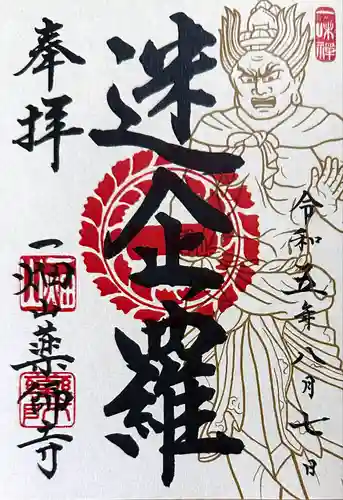 一味禅
令和五年八月七日
迷企羅
奉拝
一畑山薬師寺